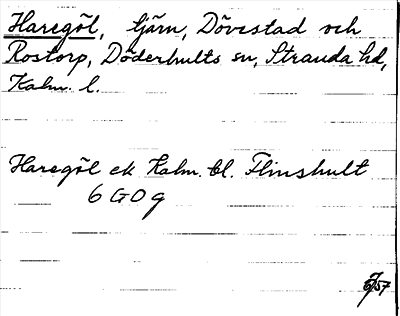 Haregöl, tjärn, Dövestad och
Rostorp, Döderhults sn, Stranda hd,
Kalm. l.
Haregöl ek Kalm. bl. Flinshult
6 G 0 g